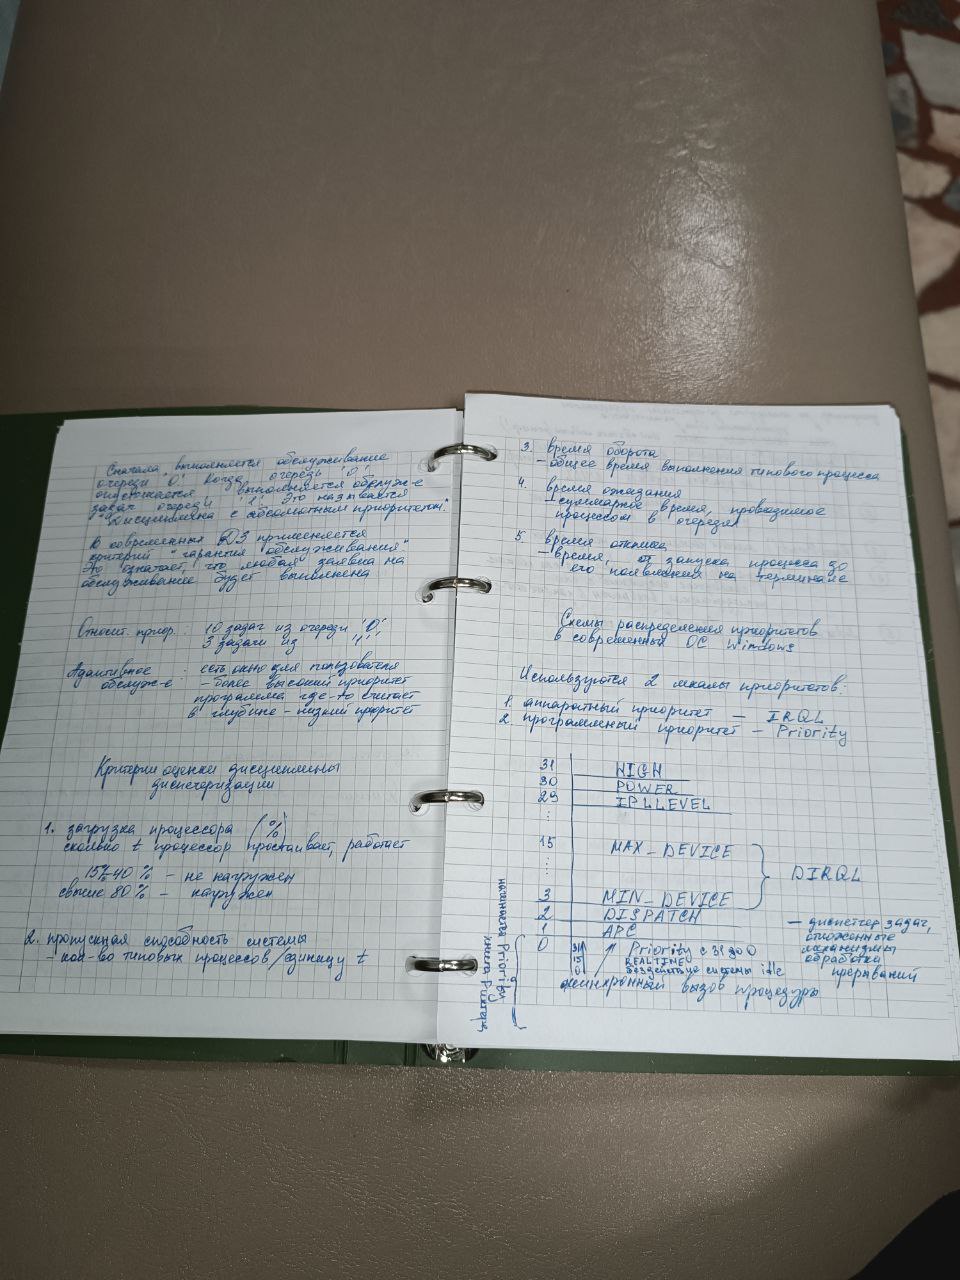 Сначала выполняется обслуживание
очереди "0". Когда очередь "0"
опустошается, выполняется обслуж-е
задач очереди "1". Это называется
"Дисциплина с абсолютным приоритетом."
В современных ДЗ применяется
критерий "гарантия обслуживания"
Это означает, что любая заявка на
обслуживание будет выполнена
Относит. приор.: 10 задач из очереди "0"
3 задачи из "1"
Адаптивное обслуж-е : есть окно для пользователя
- более высокий приоритет
программа где-то считает
в глубине - низкий приоритет
Критерии оценки дисциплины
диспетчеризации
1. загрузка процессора (%)
сколько t процессор простаивает, работает
15%-40% - не нагружен
свыше 80% - нагружен
2. пропускная способность системы
- кол-во типовых процессов/единицу t
3. время оборота
- общее время выполнения типового процесса
4. время ожидания
- суммарное время, проводимое
процессом в очереди
5. время отклика
- время, от запуска процесса до
его появления на терминале
Схемы распределения приоритетов
в современных ОС Windows
Используются 2 шкалы приоритетов:
1. аппаратный приоритет - IRQL
2. программный приоритет - Priority
31 HIGH
30 POWER
29 IPLLEVEL
⋮
15 MAX_DEVICE
⋮
DIRQL
3 MIN_DEVICE
2 DISPATCH
- диспетчер задач,
отложенные
механизмы
обработки
прерываний
1 APC
0
31
15
0
Priority с 31 до 0
REALTIME
бездействие системы idle
асинхронный вызов процедуры
начинается Priority
книга Рихтера